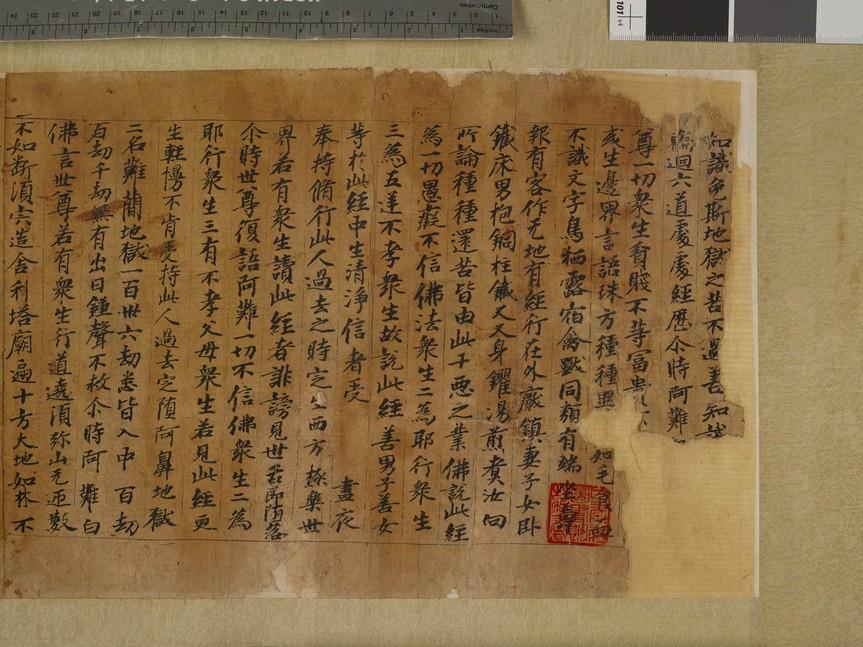 知識免斯地獄之苦不遇善知識
輪迴六道處處經歷尒時阿難
尊一切衆生貧賤不等冨貴
或生邊界言語殊方種種異 如毛食血
不識文字鳥栖露宿禽獸同類有端坐
報有客作无地有經行在外廠鎮妻子女卧
鐵床男抱銅柱鐵叉叉身鑊湯煎煑汝向
所論種種還苦皆由此十惡之業佛說此經
為一切愚癡不信佛法衆生二為耶行衆生
三為五逆不孝衆生故說此經善男子善女
等於此經中生清淨信者受
奉持脩行此人過去之時定生西方極樂世 晝夜
界若有衆生讀此經者誹謗見世若即墮落
尒時世尊復語阿難一切不信佛衆生二為
耶行衆生三有不孝父母衆生若見此經更
生輕慢不肯受持此人過去定墮阿鼻地獄
二名難藺地獄一百卅六劫悉皆入中百劫
百劫千劫無有出日鍾聲不救尒時阿難白
佛言世尊若有衆生行道遶須弥山无迊數
不如断須突造舍利塔廟遍十方大地如林不